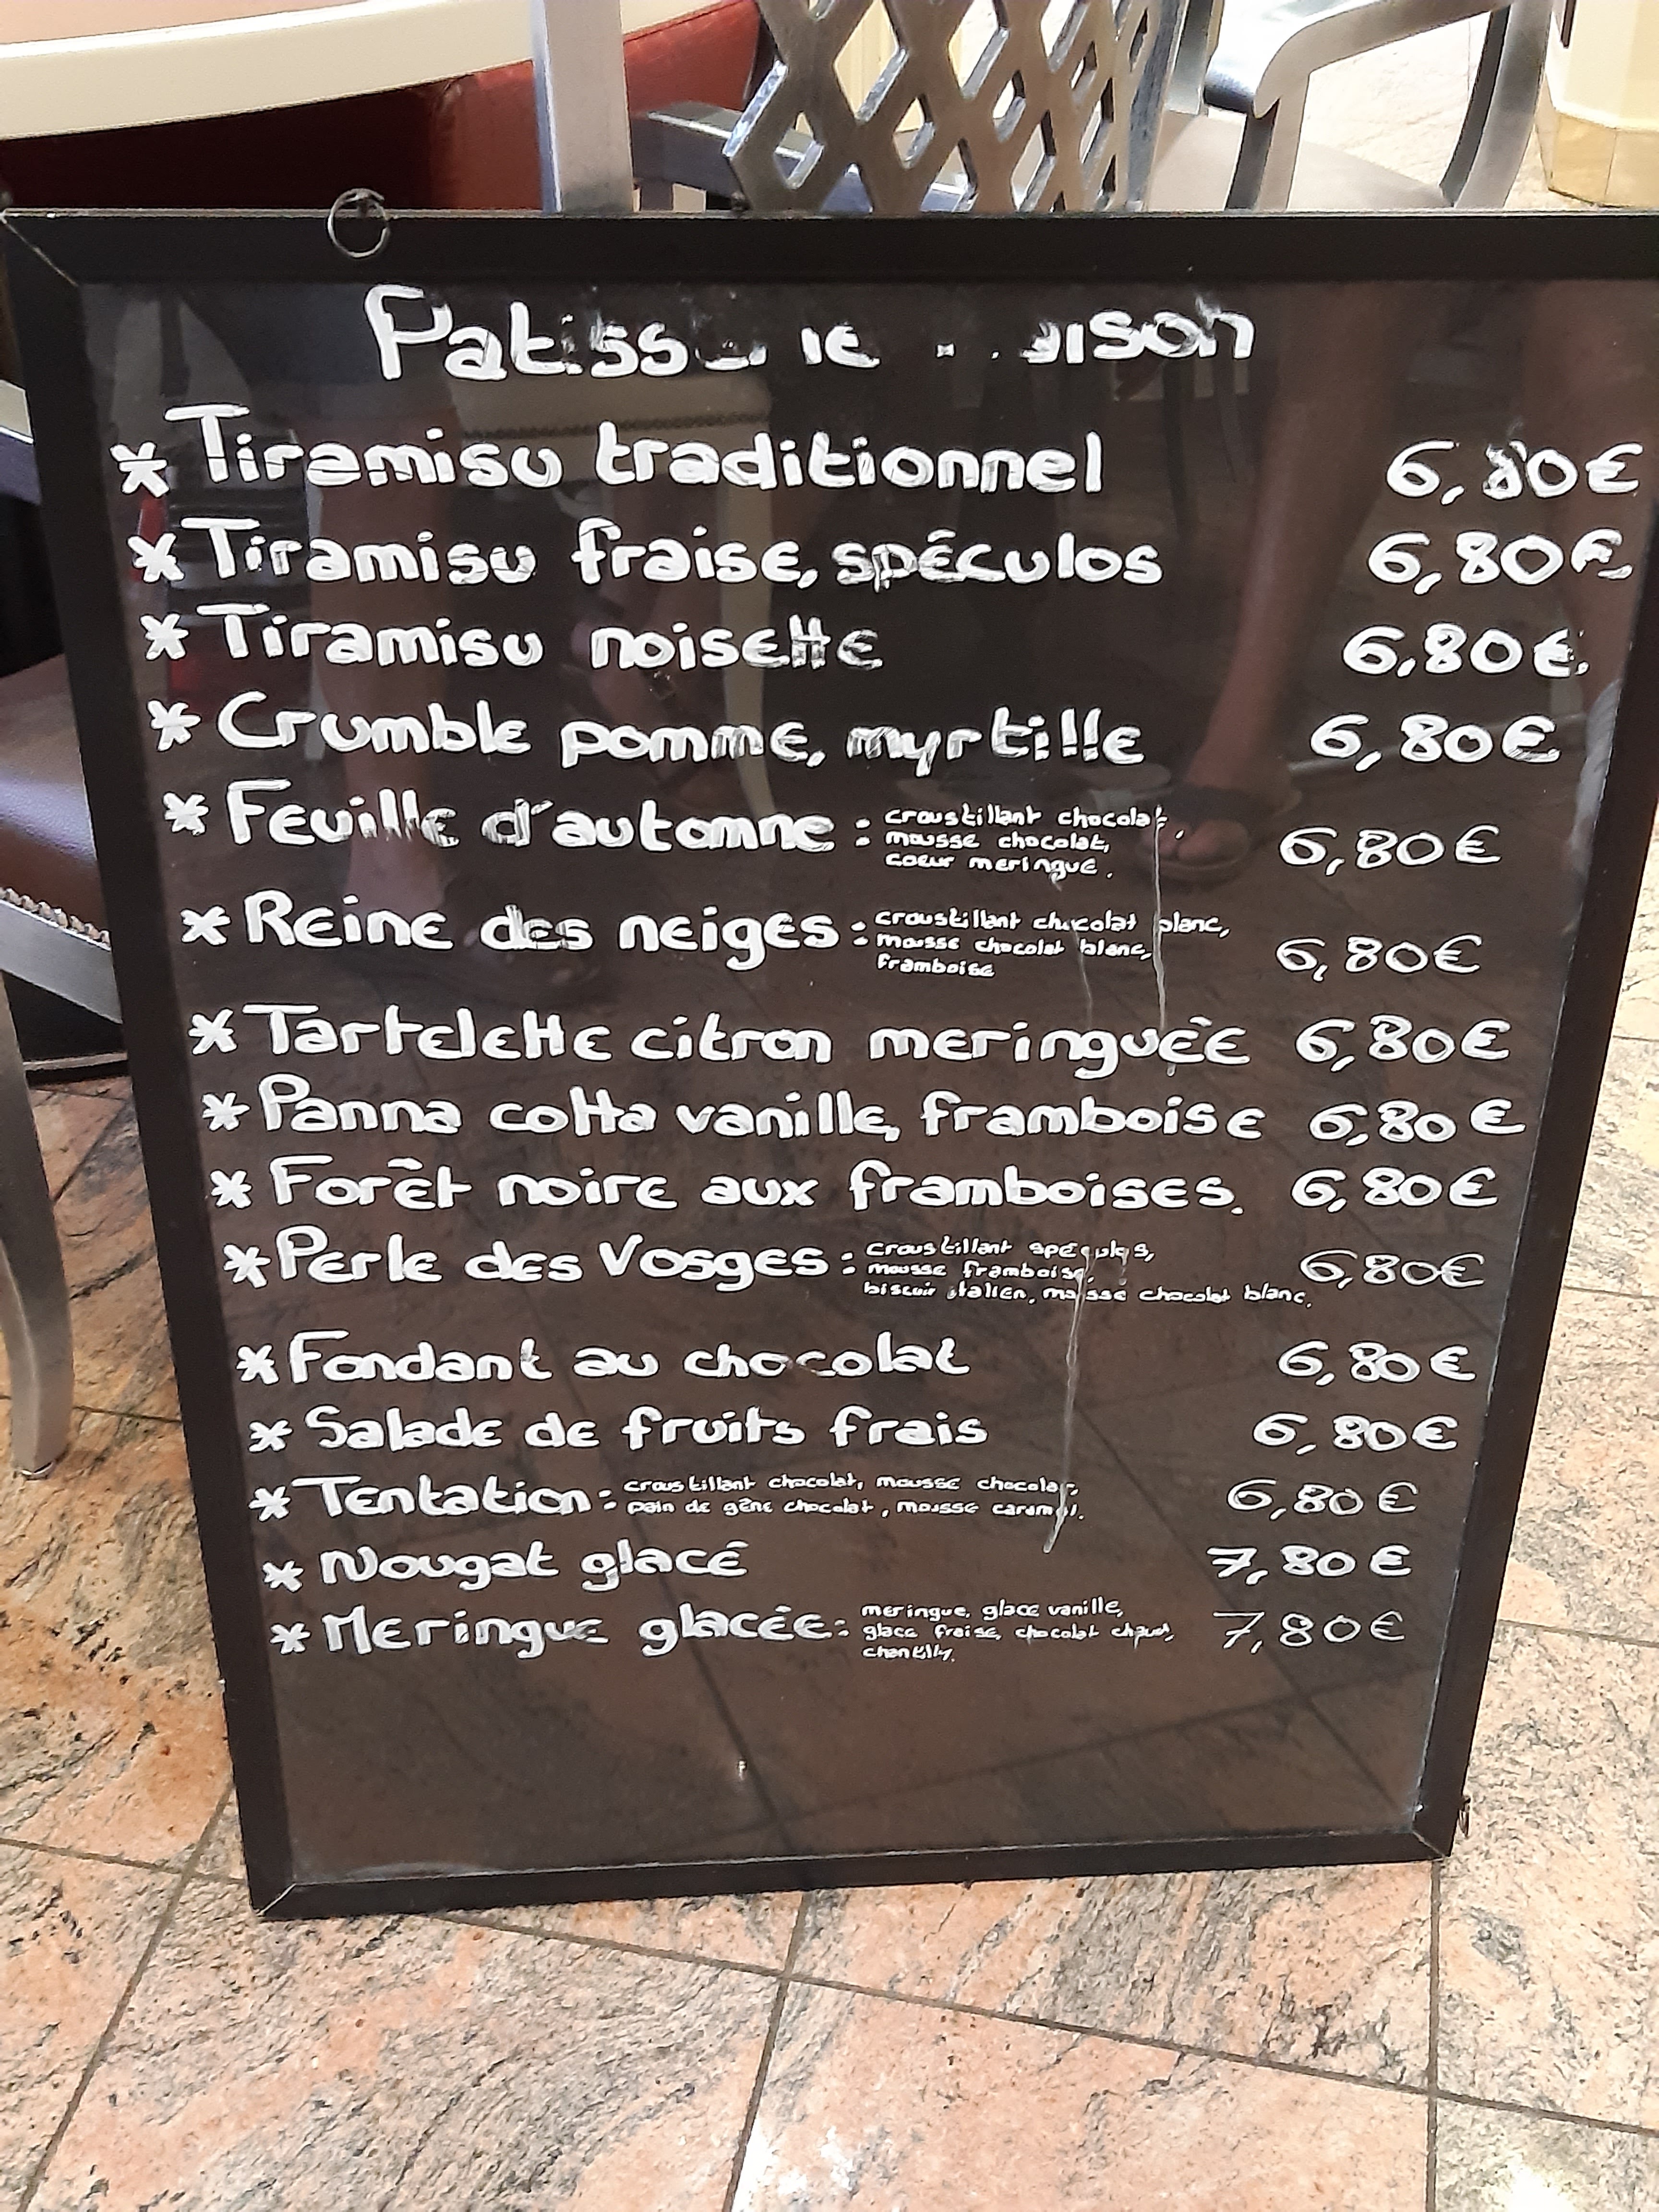 * Tiramisu traditionnel 6,80€
* Tiramisu fraise, spéculos 6,80€
* Tiramisu noisette 6,80€
* Crumble pomme, myrtille 6,80€
* Feuille d'automne : croustillant chocolat, 6,80€
mousse chocolat,
coeur meringue.
* Reine des neiges : croustillant chocolat blanc, 6,80€
mousse chocolat blanc,
framboise
* Tartelette citron meringuée 6,80€
* Panna cotta vanille, framboise 6,80€
* Forêt noire aux framboises. 6,80€
* Perle des Vosges : croustillant spéculos, 6,80€
mousse framboise,
biscuit italien, mousse chocolat blanc.
* Fondant au chocolat 6,80€
* Salade de fruits frais 6,80€
* Tentation : croustillant chocolat, mousse chocolat, 6,80€
pain de gêne chocolat, mousse caramel.
* Nougat glacé 7,80€
* Meringue glacée : meringue, glace vanille, 7,80€
glace fraise, chocolat chaud,
chantilly.